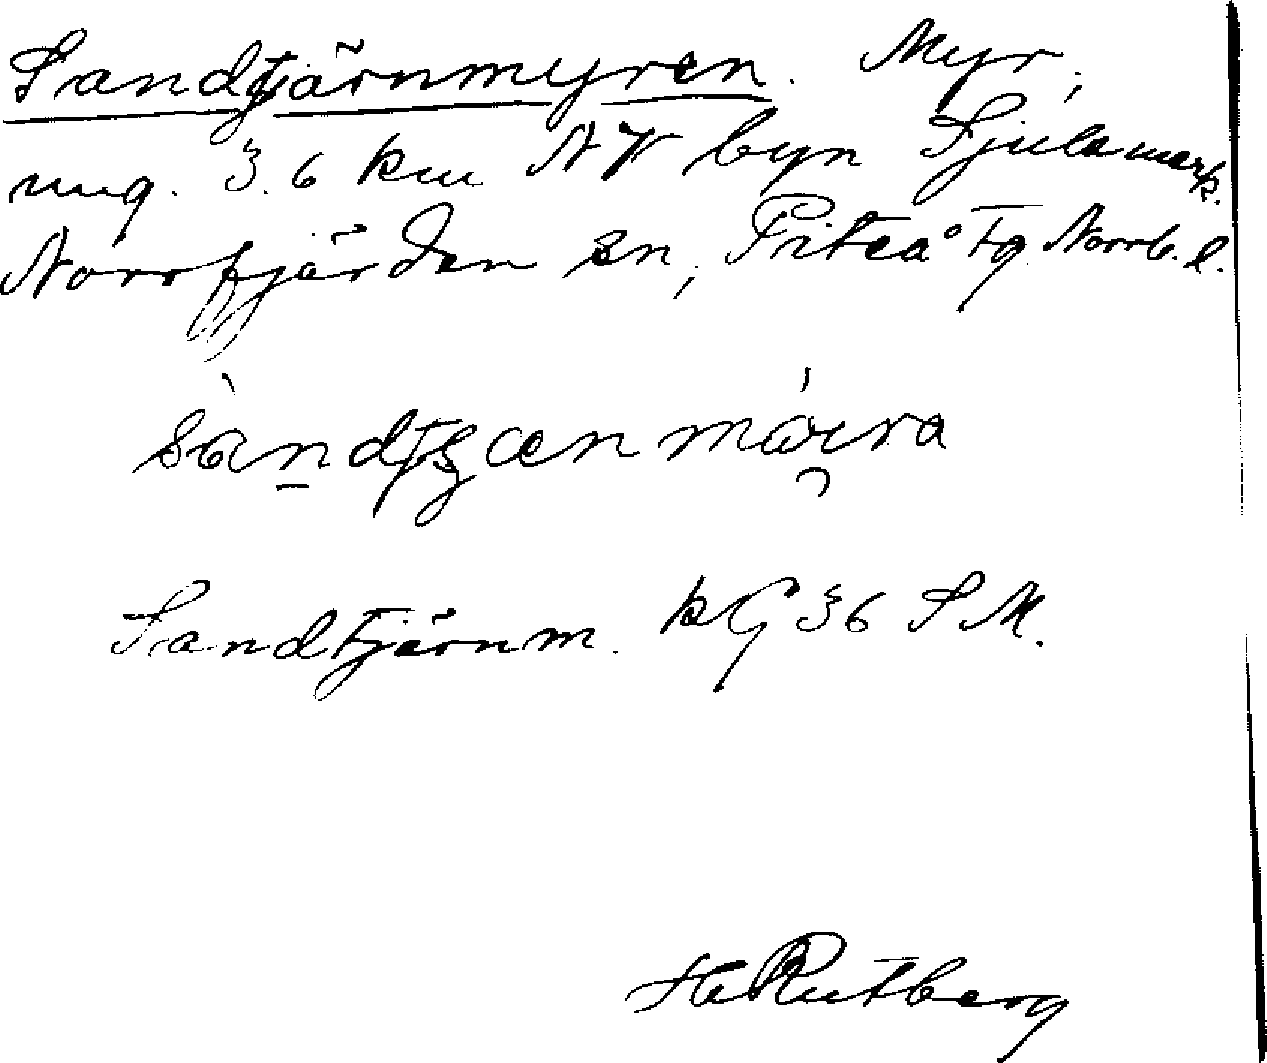 Sandtjärnmyren. Myr,
ung. 3.6 km NV byn Sjulsmark.
Norrfjärden sn, Piteå tg Norrb. l.
Sandtjärnm. kG 36 SM.
H Rutberg